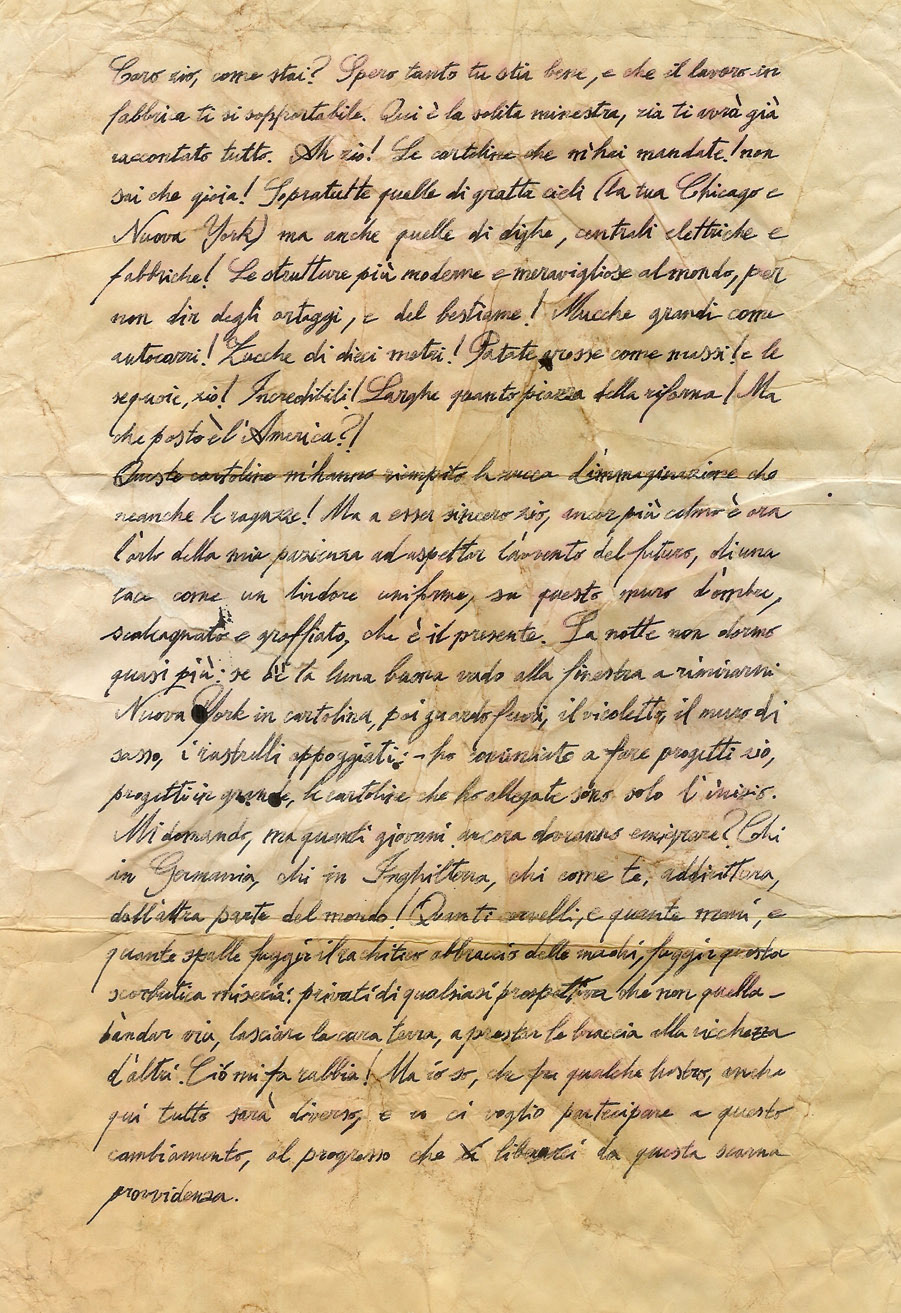 Caro zio, come stai? Spero tanto tu stia bene, e che il lavoro in
fabbrica ti si sopportabile. Qui è la solita minestra, zia ti avrà già
raccontato tutto. Ah zio! Le cartoline che m'hai mandate! non
sai che gioia! Sopratutte quelle di gratta cieli (la tua Chicago e
Nuova York) ma anche quelle di dighe, centrali elettriche e
fabbriche! Le strutture più moderne e meravigliose al mondo, per
non dir degli ortaggi, e del bestiame! Mucche grandi come
autocarri! Zucche di dieci metri! Patate grosse come massi! e le
sequoie, zio! Incredibili! Larghe quanto piazza della riforma! Ma
che posto è l'America?!
Queste cartoline m'hanno riempito la zucca d'immaginazione che
neanche le ragazze! Ma a esser sincero zio, ancor più colmo è ora
l'orlo della mia pazienza ad aspettar l'avvento del futuro, di una
luce come un lindore uniforme, su questo muro d'ombre,
scalcagnato e graffiato, che è il presente. La notte non dormo
quasi più: se c'è la luna bassa vado alla finestra a rimirarmi
Nuova York in cartolina, poi guardo fuori, il vicoletto, il muro di
sasso, i rastrelli appoggiati: - ho cominciato a fare progetti zio,
progetti in grande, le cartoline che ho allegate sono solo l'inizio.
Mi domando, ma quanti giovani ancora dovranno emigrare? Chi
in Germania, chi in Inghilterra, chi come te, addirittura,
dall'altra parte del mondo! Quanti cervelli, e quante mani, e
quante spalle fuggir il rachitico abbraccio delle madri, fuggir questa
scorbutica miseria: privati di qualsiasi prospettiva che non quella -
bandar via, lasciare la cara terra, a prestar le braccia alla ricchezza
d'altri. Ciò mi fa rabbia! Ma io so, che fra qualche lustro, anche
qui tutto sarà diverso, e io ci voglio partecipare a questo
cambiamento, al progresso che ci liberarci da questa scarna
provvidenza.